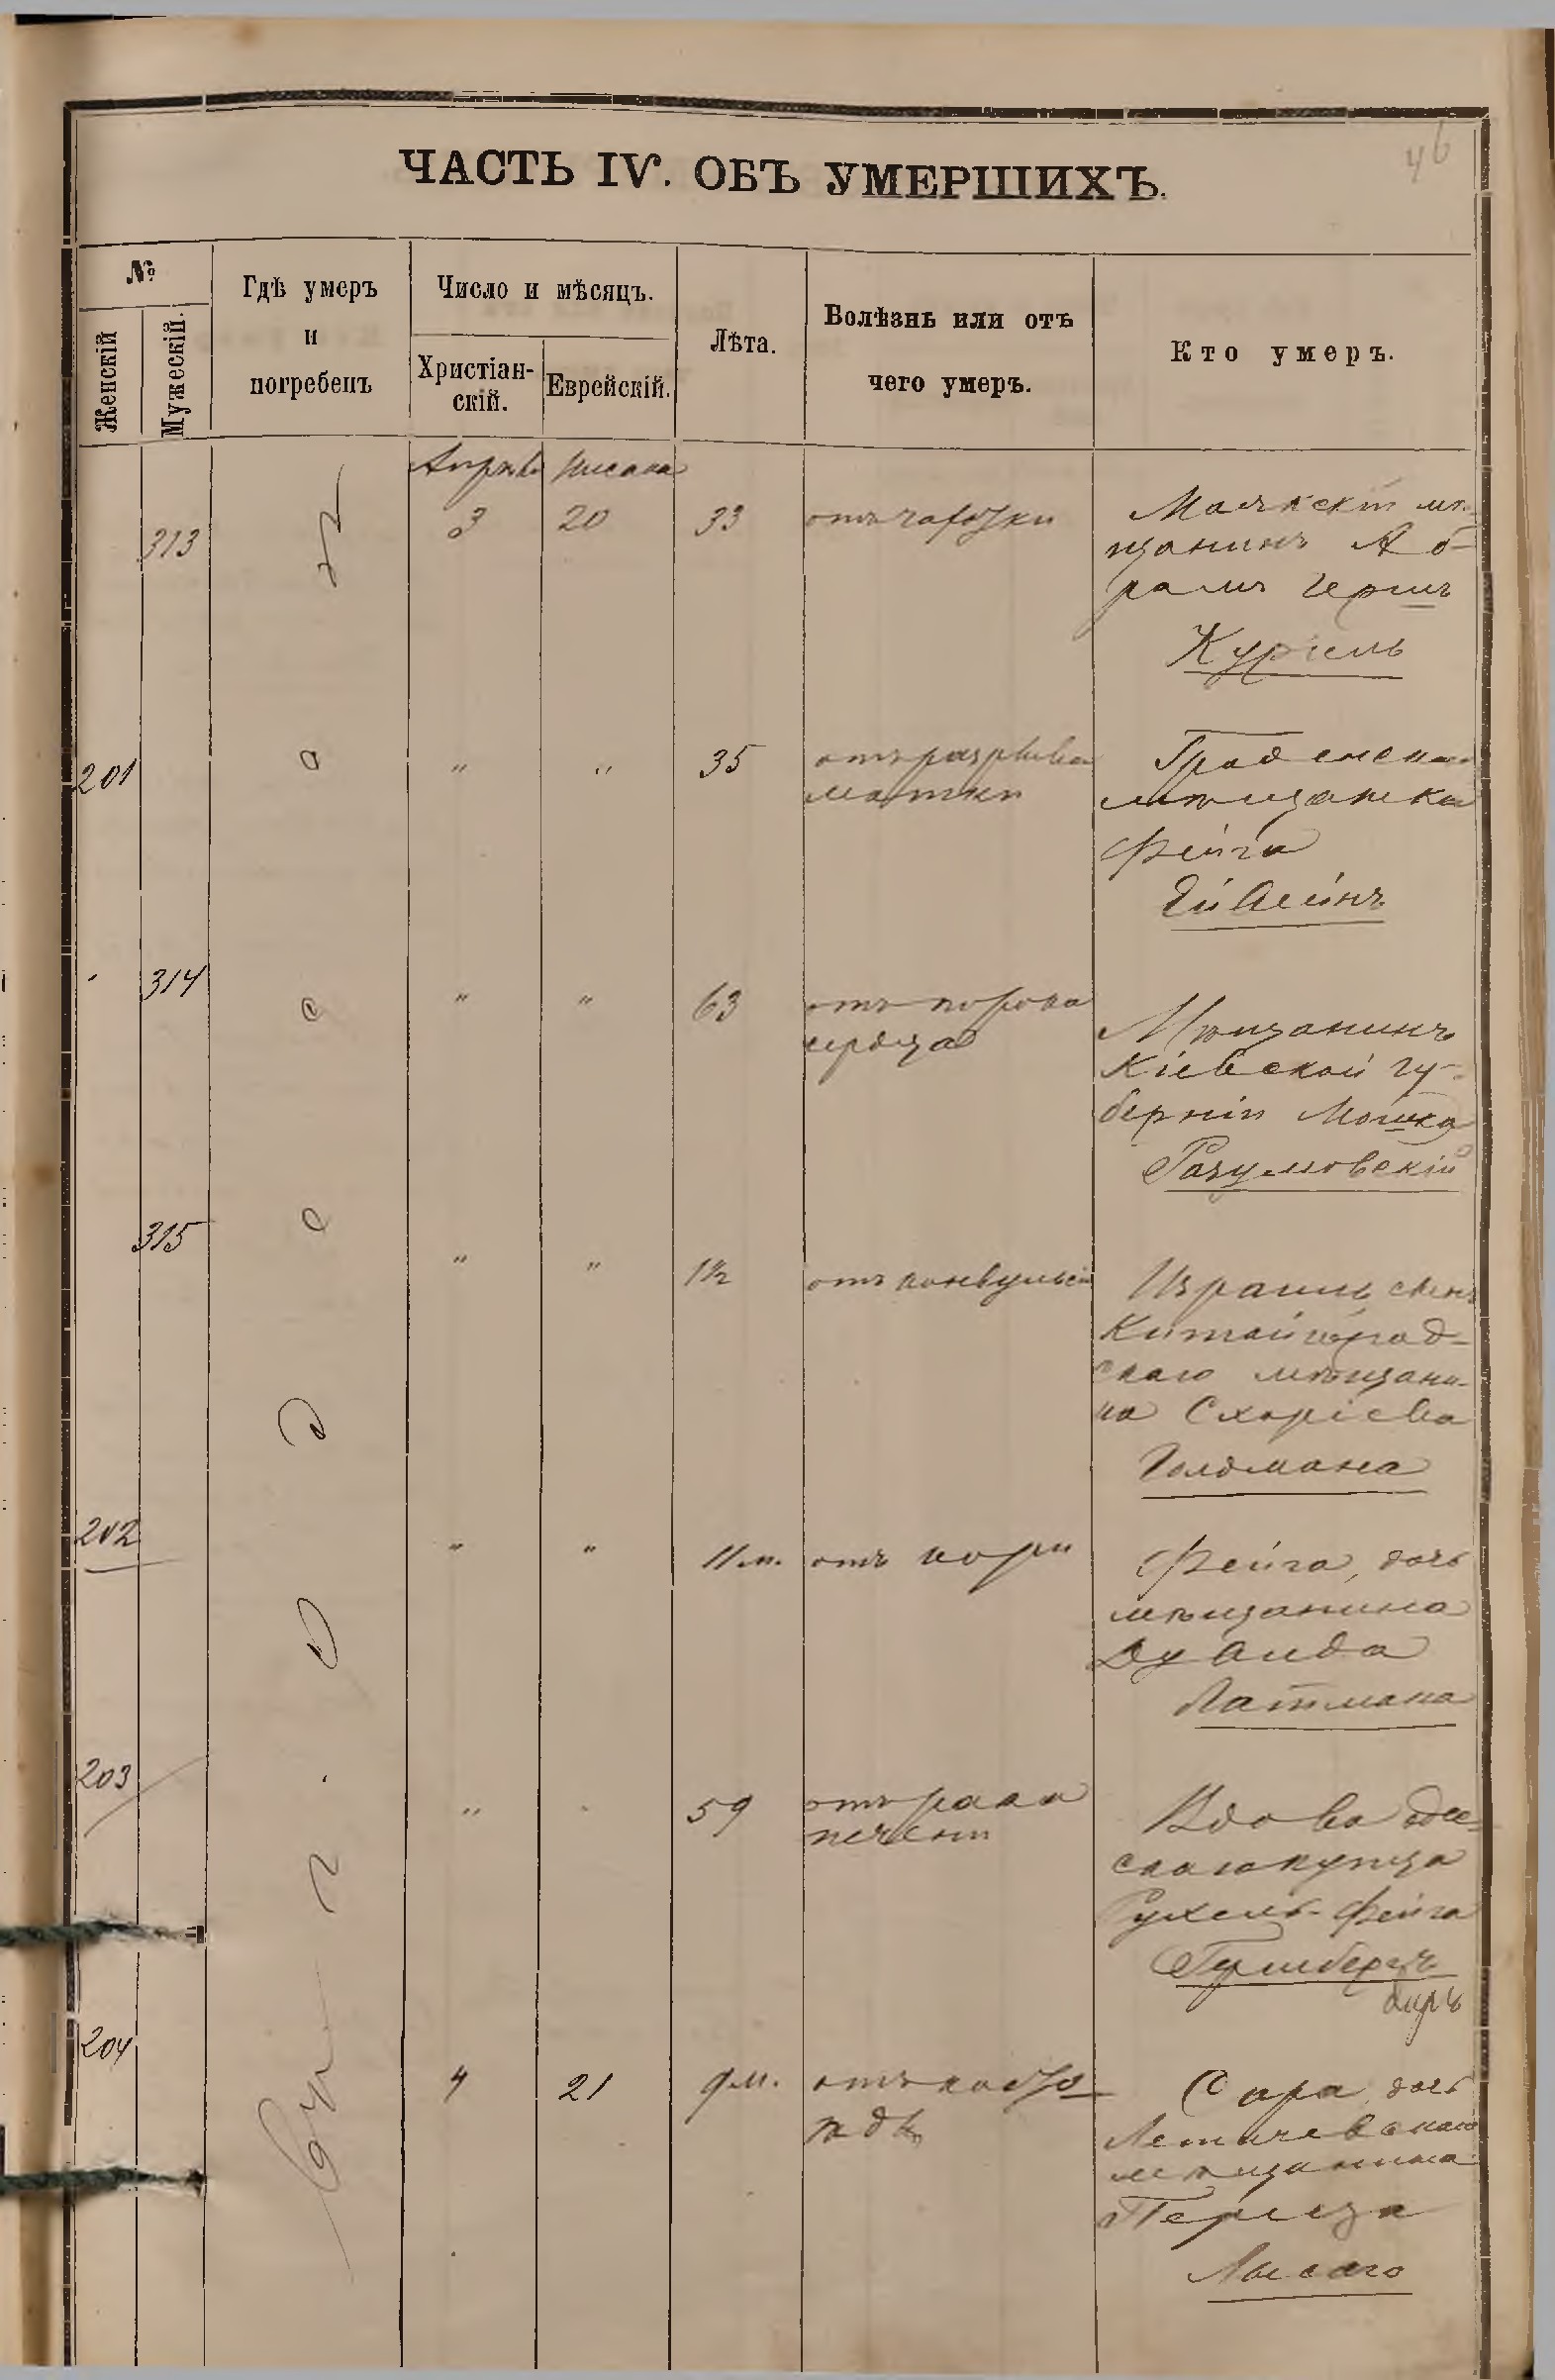 46
ЧАСТЬ IV. ОБЪ УМЕРШИХЪ.
№
Женскій
Мужескій.
Гдѣ умеръ
и
погребенъ
Число и мѣсяцъ.
Христіан-
скій.
Еврейскій.
Лѣта.
Болѣзнь или отъ
чего умеръ.
Кто умеръ.
въ г. Одессѣ
Апрѣль Нисана
313 3 20 33 отъ чахотки
Маякскій мѣ-
щанинъ Аб-
рамъ Гершъ
Куріель
201 " " 35 отъ разрыва
матки
мѣщанка
Фейга
314 " " 63 отъ порока
сердца
Мѣщанинъ
Кіевской гу-
берніи Мошка
Разумовскій
315 " " 1½ отъ конвульсій
Израиль сынъ
Китайгород-
скаго мѣщани-
на
Голдмана
202 " " 11 м. отъ кори
Фейга, дочь
мѣщанина
Дувида
Латмана
203 " " 59 отъ рака
печени
Вдова одес-
скаго купца
Рухель-Фейга
Гринбергъ
204 4 21 9 м.
Сара, дочь
Летичевскаго
мѣщанина
Переца
Лысаго